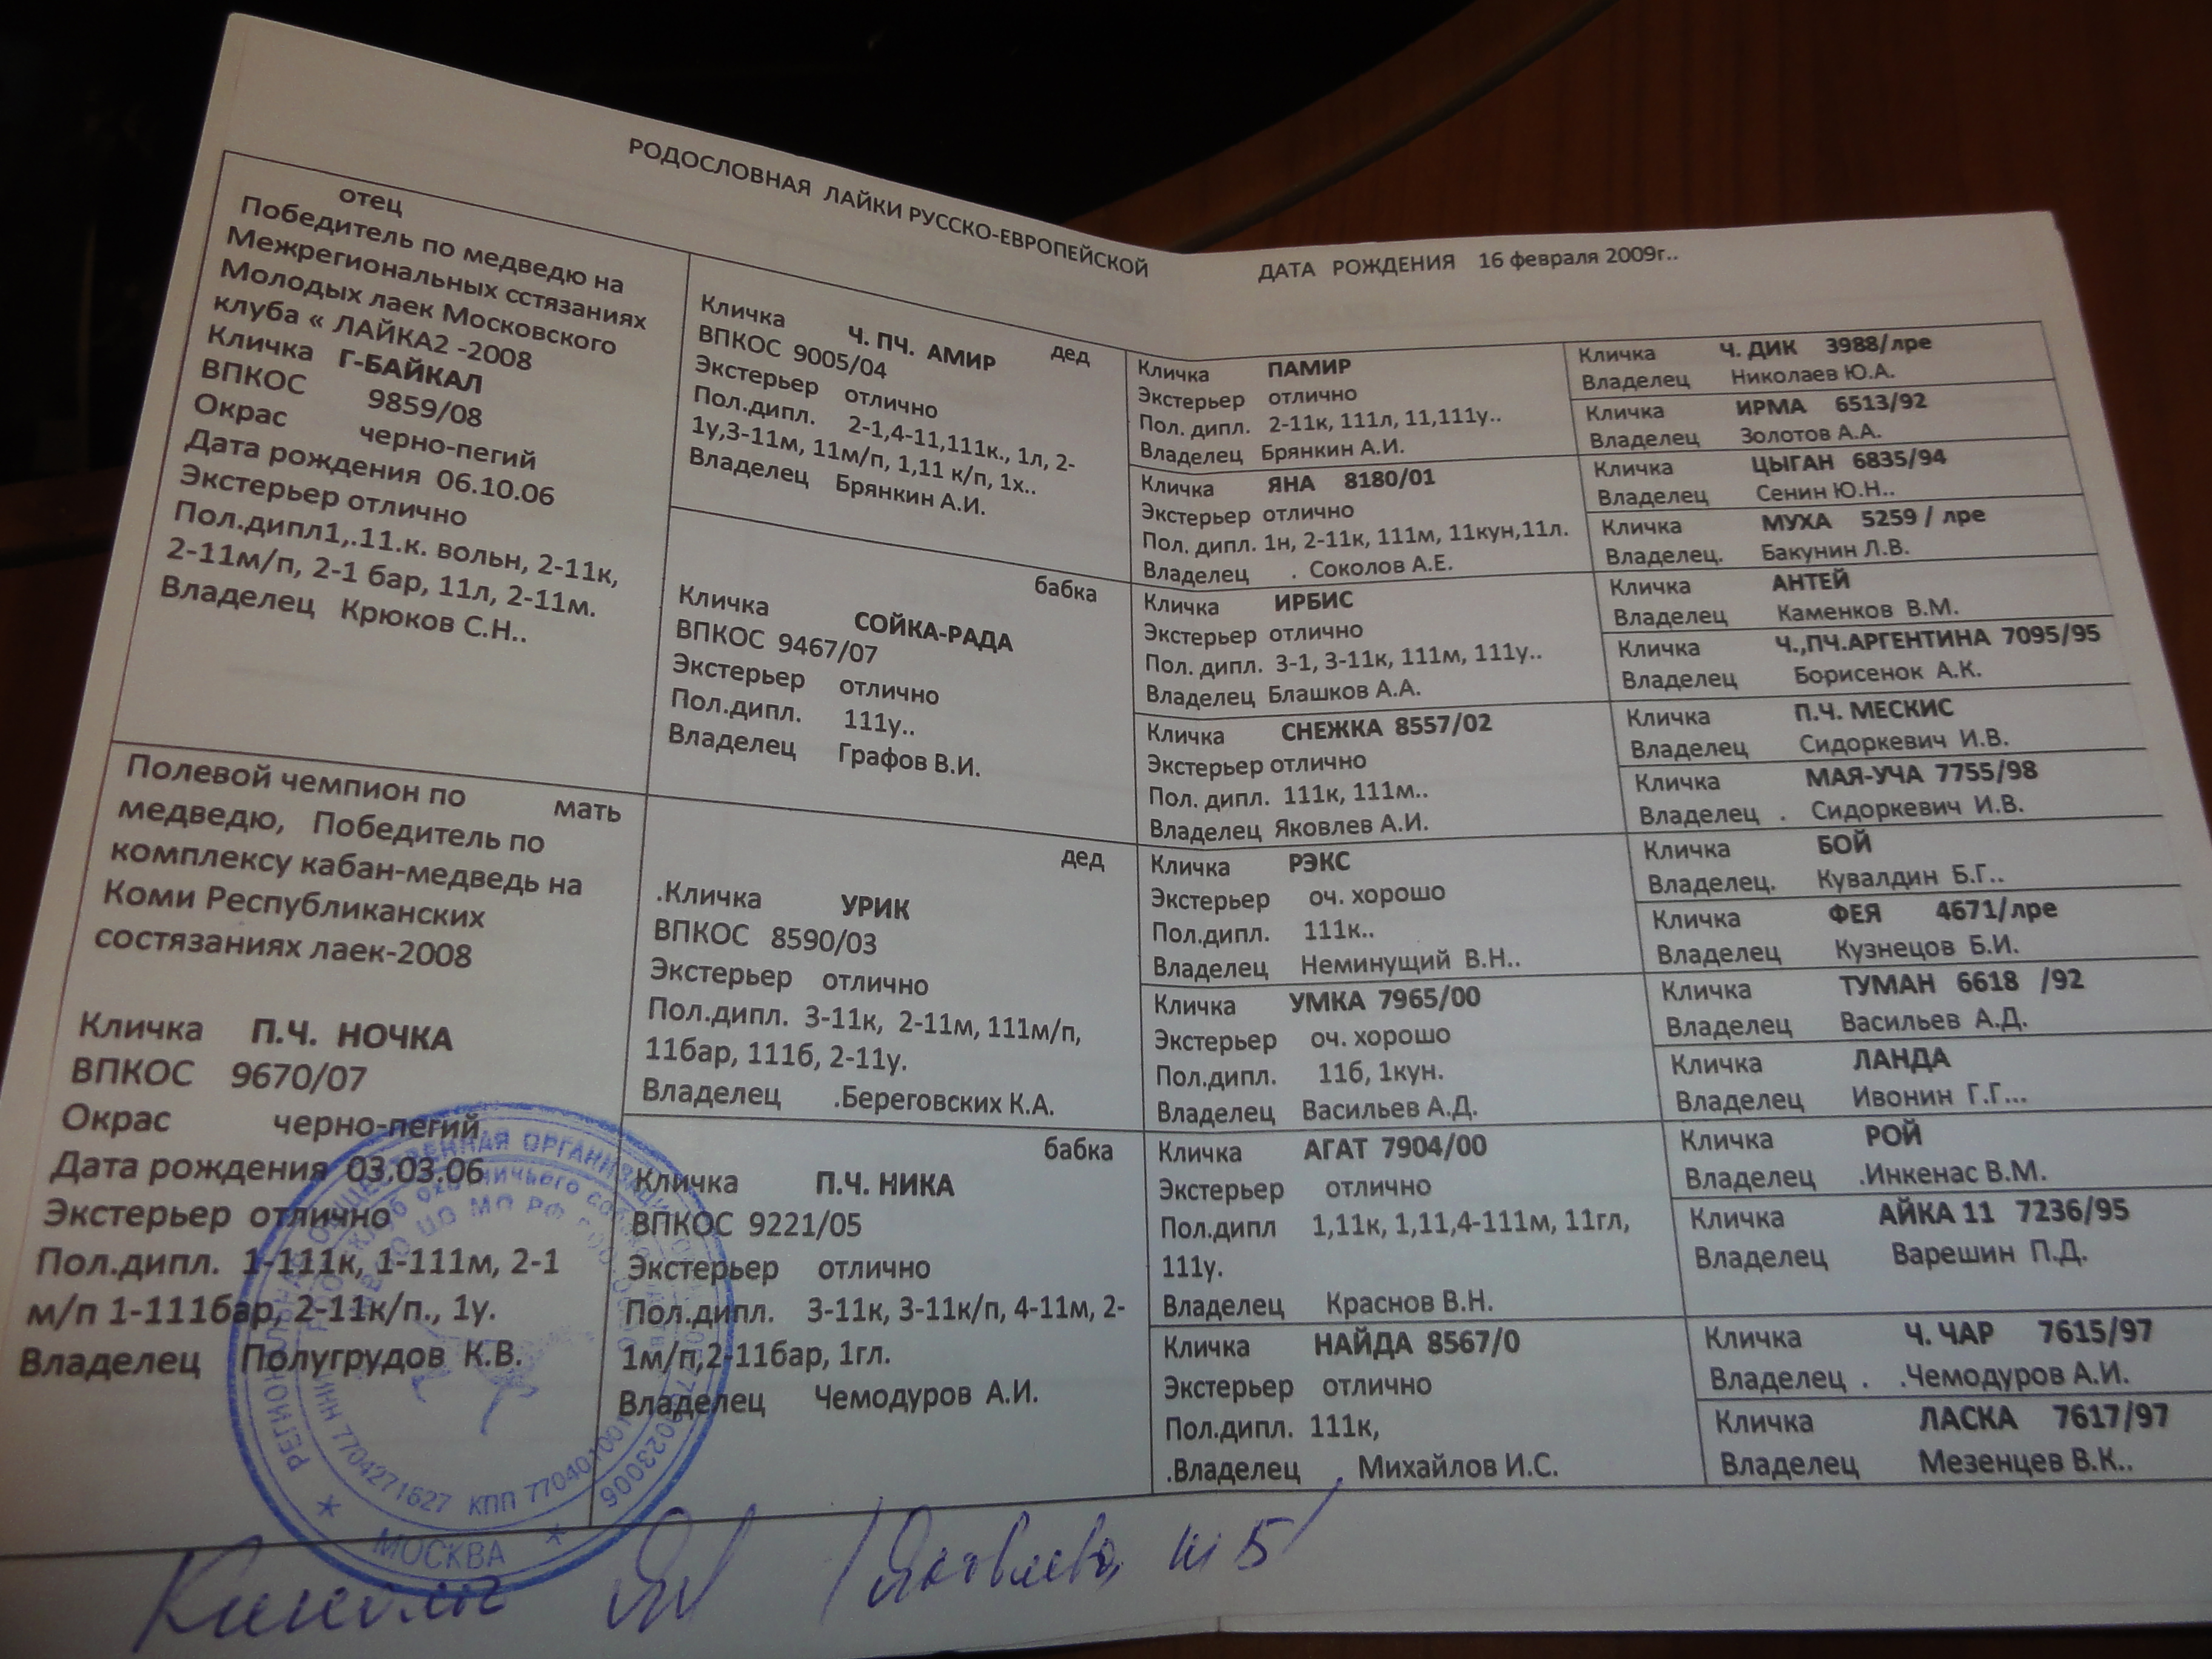 РОДОСЛОВНАЯ ЛАЙКИ РУССКО-ЕВРОПЕЙСКОЙ
ДАТА РОЖДЕНИЯ 16 февраля 2009г..
отец
Победитель по медведю на
Межрегиональных сстязаниях
Молодых лаек Московского
клуба « ЛАЙКА2 -2008
Кличка Г-БАЙКАЛ
ВПКОС 9859/08
Окрас черно-пегий
Дата рождения 06.10.06
Экстерьер отлично
Пол.дипл1,.11.к. вольн, 2-11к,
2-11м/п, 2-1 бар, 11л, 2-11м.
Владелец Крюков С.Н..
Полевой чемпион по мать
медведю, Победитель по
комплексу кабан-медведь на
Коми Республиканских
состязаниях лаек-2008
Кличка П.Ч. НОЧКА
ВПКОС 9670/07
Окрас черно-пегий
Дата рождения 03.03.06
Экстерьер отлично
Пол.дипл. 1-111к, 1-111м, 2-1
м/п 1-111бар, 2-11к/п., 1у.
Владелец Полугрудов К.В.
дед
Кличка Ч. ПЧ. АМИР
ВПКОС 9005/04
Экстерьер отлично
Пол.дипл. 2-1,4-11,111к., 1л, 2-
1у,3-11м, 11м/п, 1,11 к/п, 1х..
Владелец Брянкин А.И.
бабка
Кличка СОЙКА-РАДА
ВПКОС 9467/07
Экстерьер отлично
Пол.дипл. 111у..
Владелец Графов В.И.
дед
.Кличка УРИК
ВПКОС 8590/03
Экстерьер отлично
Пол.дипл. 3-11к, 2-11м, 111м/п,
11бар, 111б, 2-11у.
Владелец .Береговских К.А.
бабка
Кличка П.Ч. НИКА
ВПКОС 9221/05
Экстерьер отлично
Пол.дипл. 3-11к, 3-11к/п, 4-11м, 2-
1м/п,2-11бар, 1гл.
Владелец Чемодуров А.И.
Кличка ПАМИР
Экстерьер отлично
Пол. дипл. 2-11к, 111л, 11,111у..
Владелец Брянкин А.И.
Кличка ЯНА 8180/01
Экстерьер отлично
Пол. дипл. 1н, 2-11к, 111м, 11кун,11л.
Владелец . Соколов А.Е.
Кличка ИРБИС
Экстерьер отлично
Пол. дипл. 3-1, 3-11к, 111м, 111у..
Владелец Блашков А.А.
Кличка СНЕЖКА 8557/02
Экстерьер отлично
Пол. дипл. 111к, 111м..
Владелец Яковлев А.И.
Кличка РЭКС
Экстерьер оч. хорошо
Пол.дипл. 111к..
Владелец Неминущий В.Н..
Кличка УМКА 7965/00
Экстерьер оч. хорошо
Пол.дипл. 11б, 1кун.
Владелец Васильев А.Д.
Кличка АГАТ 7904/00
Экстерьер отлично
Пол.дипл 1,11к, 1,11,4-111м, 11гл,
111у.
Владелец Краснов В.Н.
Кличка НАЙДА 8567/0
Экстерьер отлично
Пол.дипл. 111к,
.Владелец Михайлов И.С.
Кличка Ч. ДИК 3988/лре
Владелец Николаев Ю.А.
Кличка ИРМА 6513/92
Владелец Золотов А.А.
Кличка ЦЫГАН 6835/94
Владелец Сенин Ю.Н..
Кличка МУХА 5259 / лре
Владелец. Бакунин Л.В.
Кличка АНТЕЙ
Владелец Каменков В.М.
Кличка Ч.,ПЧ.АРГЕНТИНА 7095/95
Владелец Борисенок А.К.
Кличка П.Ч. МЕСКИС
Владелец Сидоркевич И.В.
Кличка МАЯ-УЧА 7755/98
Владелец . Сидоркевич И.В.
Кличка БОЙ
Владелец. Кувалдин Б.Г..
Кличка ФЕЯ 4671/лре
Владелец Кузнецов Б.И.
Кличка ТУМАН 6618 /92
Владелец Васильев А.Д.
Кличка ЛАНДА
Владелец Ивонин Г.Г...
Кличка РОЙ
Владелец .Инкенас В.М.
Кличка АЙКА 11 7236/95
Владелец Варешин П.Д.
Кличка Ч. ЧАР 7615/97
Владелец . .Чемодуров А.И.
Кличка ЛАСКА 7617/97
Владелец Мезенцев В.К..
РЕГИОНАЛЬНАЯ ОБЩЕСТВЕННАЯ ОРГАНИЗАЦИЯ
ИНН 7704271627 КПП 770401001
МОСКВА